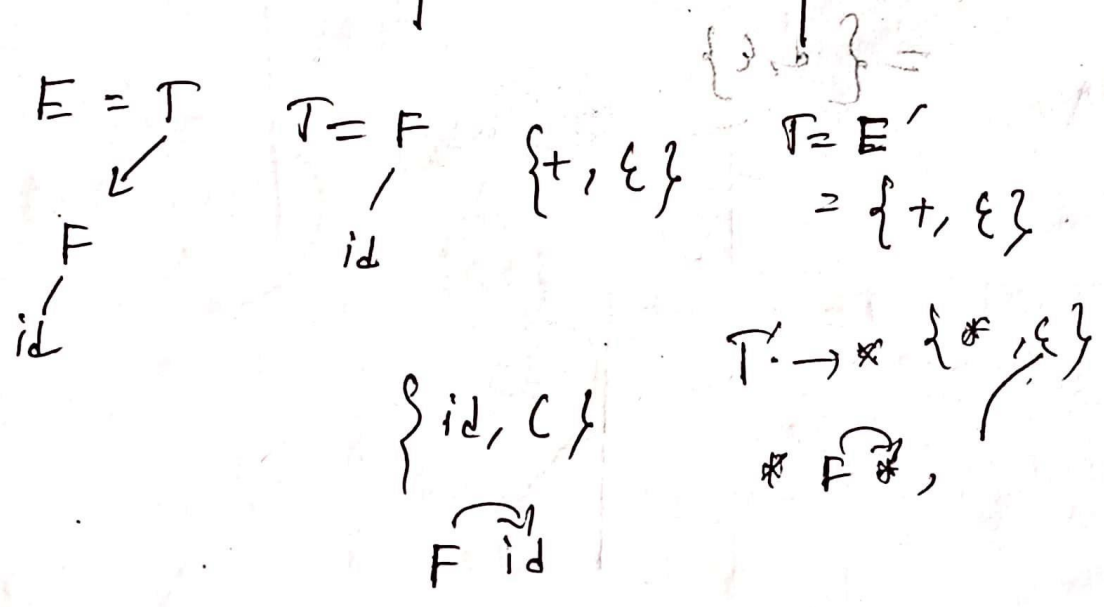 E = T
F
id
T = F
id
{+, ε}
T = E′
= {+, ε}
T′ → * {*, ε}
* F *,
{id, (}
F id